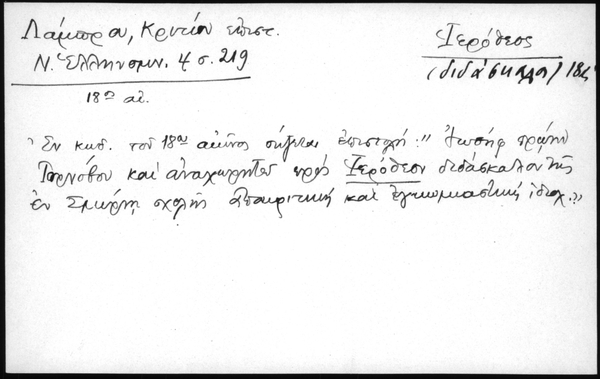 Λάμπρου, Κρητῶν ἐπιστ.
Ν. Ἑλληνομν. 4 σ. 219
18ος αἰ.
Ἱερόθεος
(διδάσκαλος) 18ς
Ἐν κωδ. τοῦ 18ου αἰῶνος σῴζεται ἐπιστολή: "Ἰωσήφ πρώην
Τορνόβου καί ἀναχωρητοῦ πρός Ἱερόθεον διδάσκαλον τῆς
ἐν Σμύρνῃ σχολῆς ἀπολογητική καί ἐγκωμιαστική